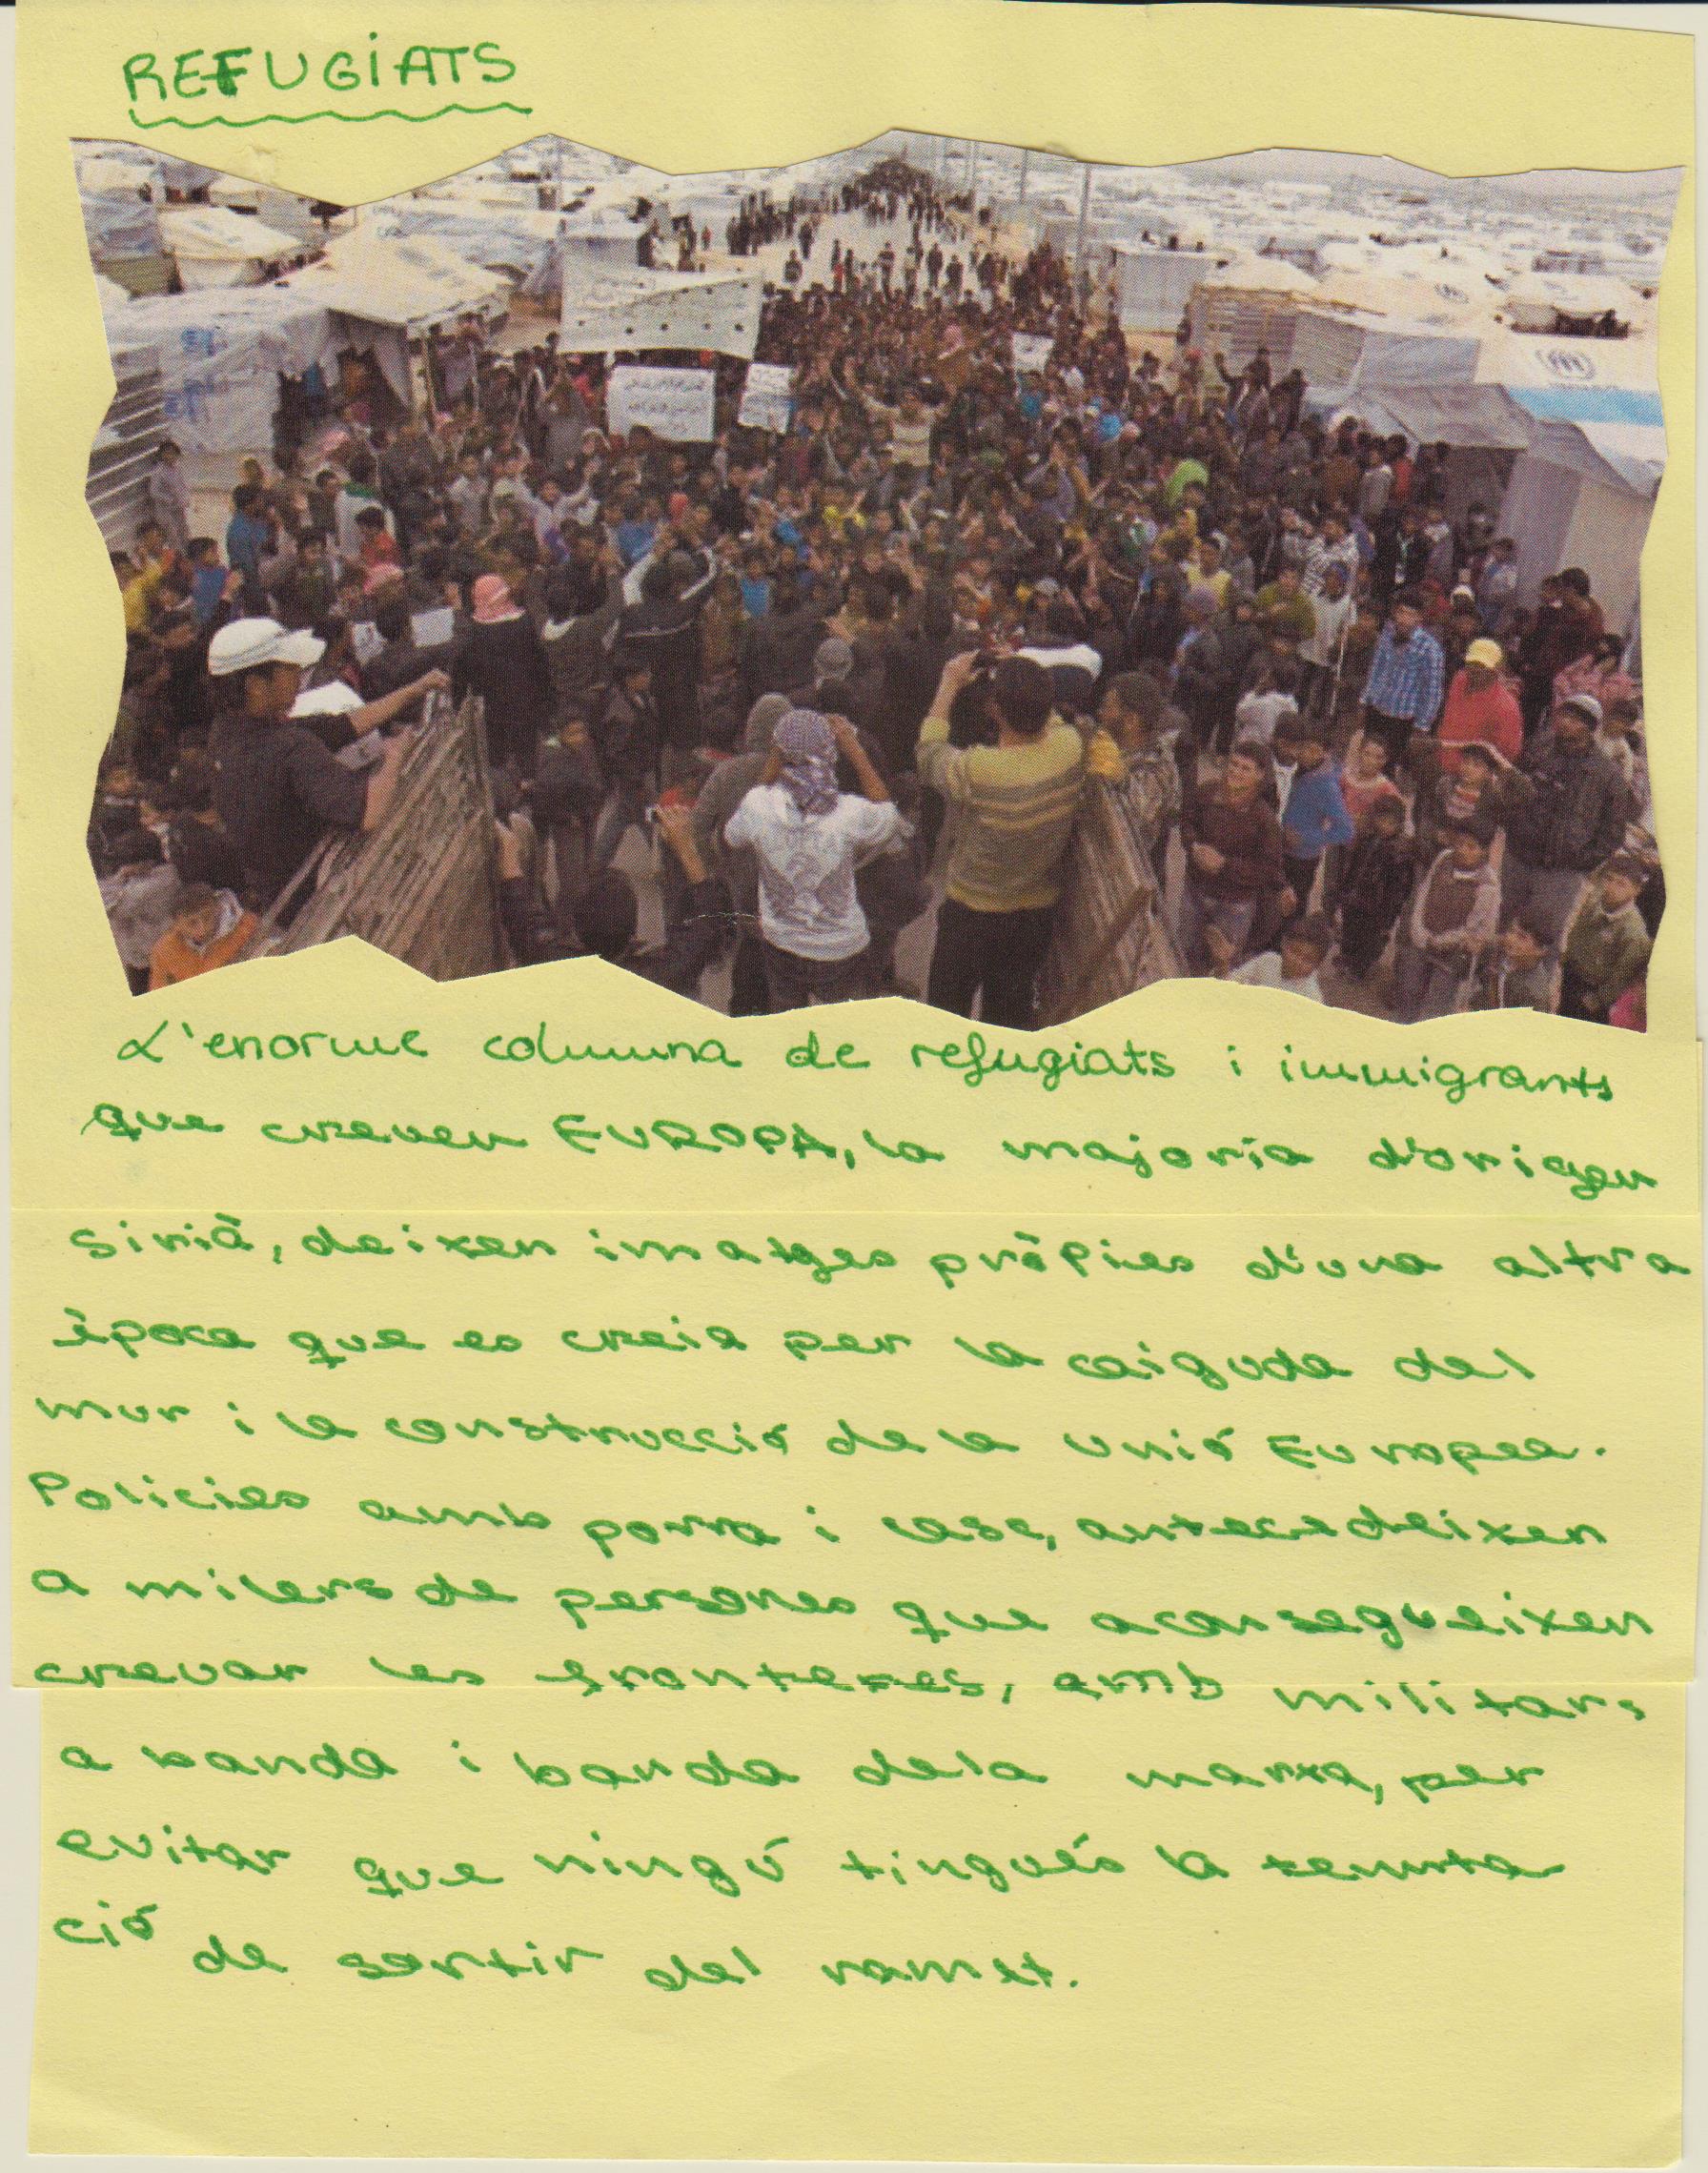 REFUGIATS
L'enorme columna de refugiats i immigrants
que creuen EUROPA, la majoria d'origen
sirià, deixen imatges pròpies d'una altra
època que es creia per la caiguda del
mur i la construcció de la unió Europea.
Policies amb porra i casc, antecedeixen
a milers de persones que aconsegueixen
creuar les fronteres, amb militars
a banda i banda dela marxa, per
evitar que ningú tingués la tempta
ció de sortir del ramat.